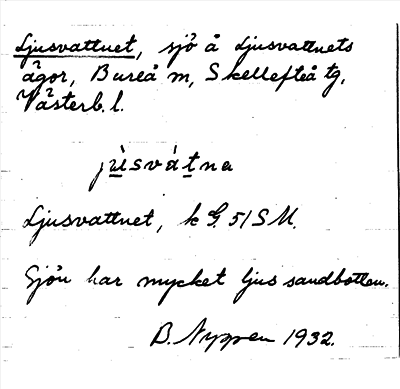 Ljusvattnet, sjö å Ljusvattnets
ägor, Bureå sn, Skellefteå tg,
Västerb. l.
jùsvátna
Ljusvattnet, k G. 51 SM.
Sjön har mycket ljus sandbotten.
B. Nygren 1932.